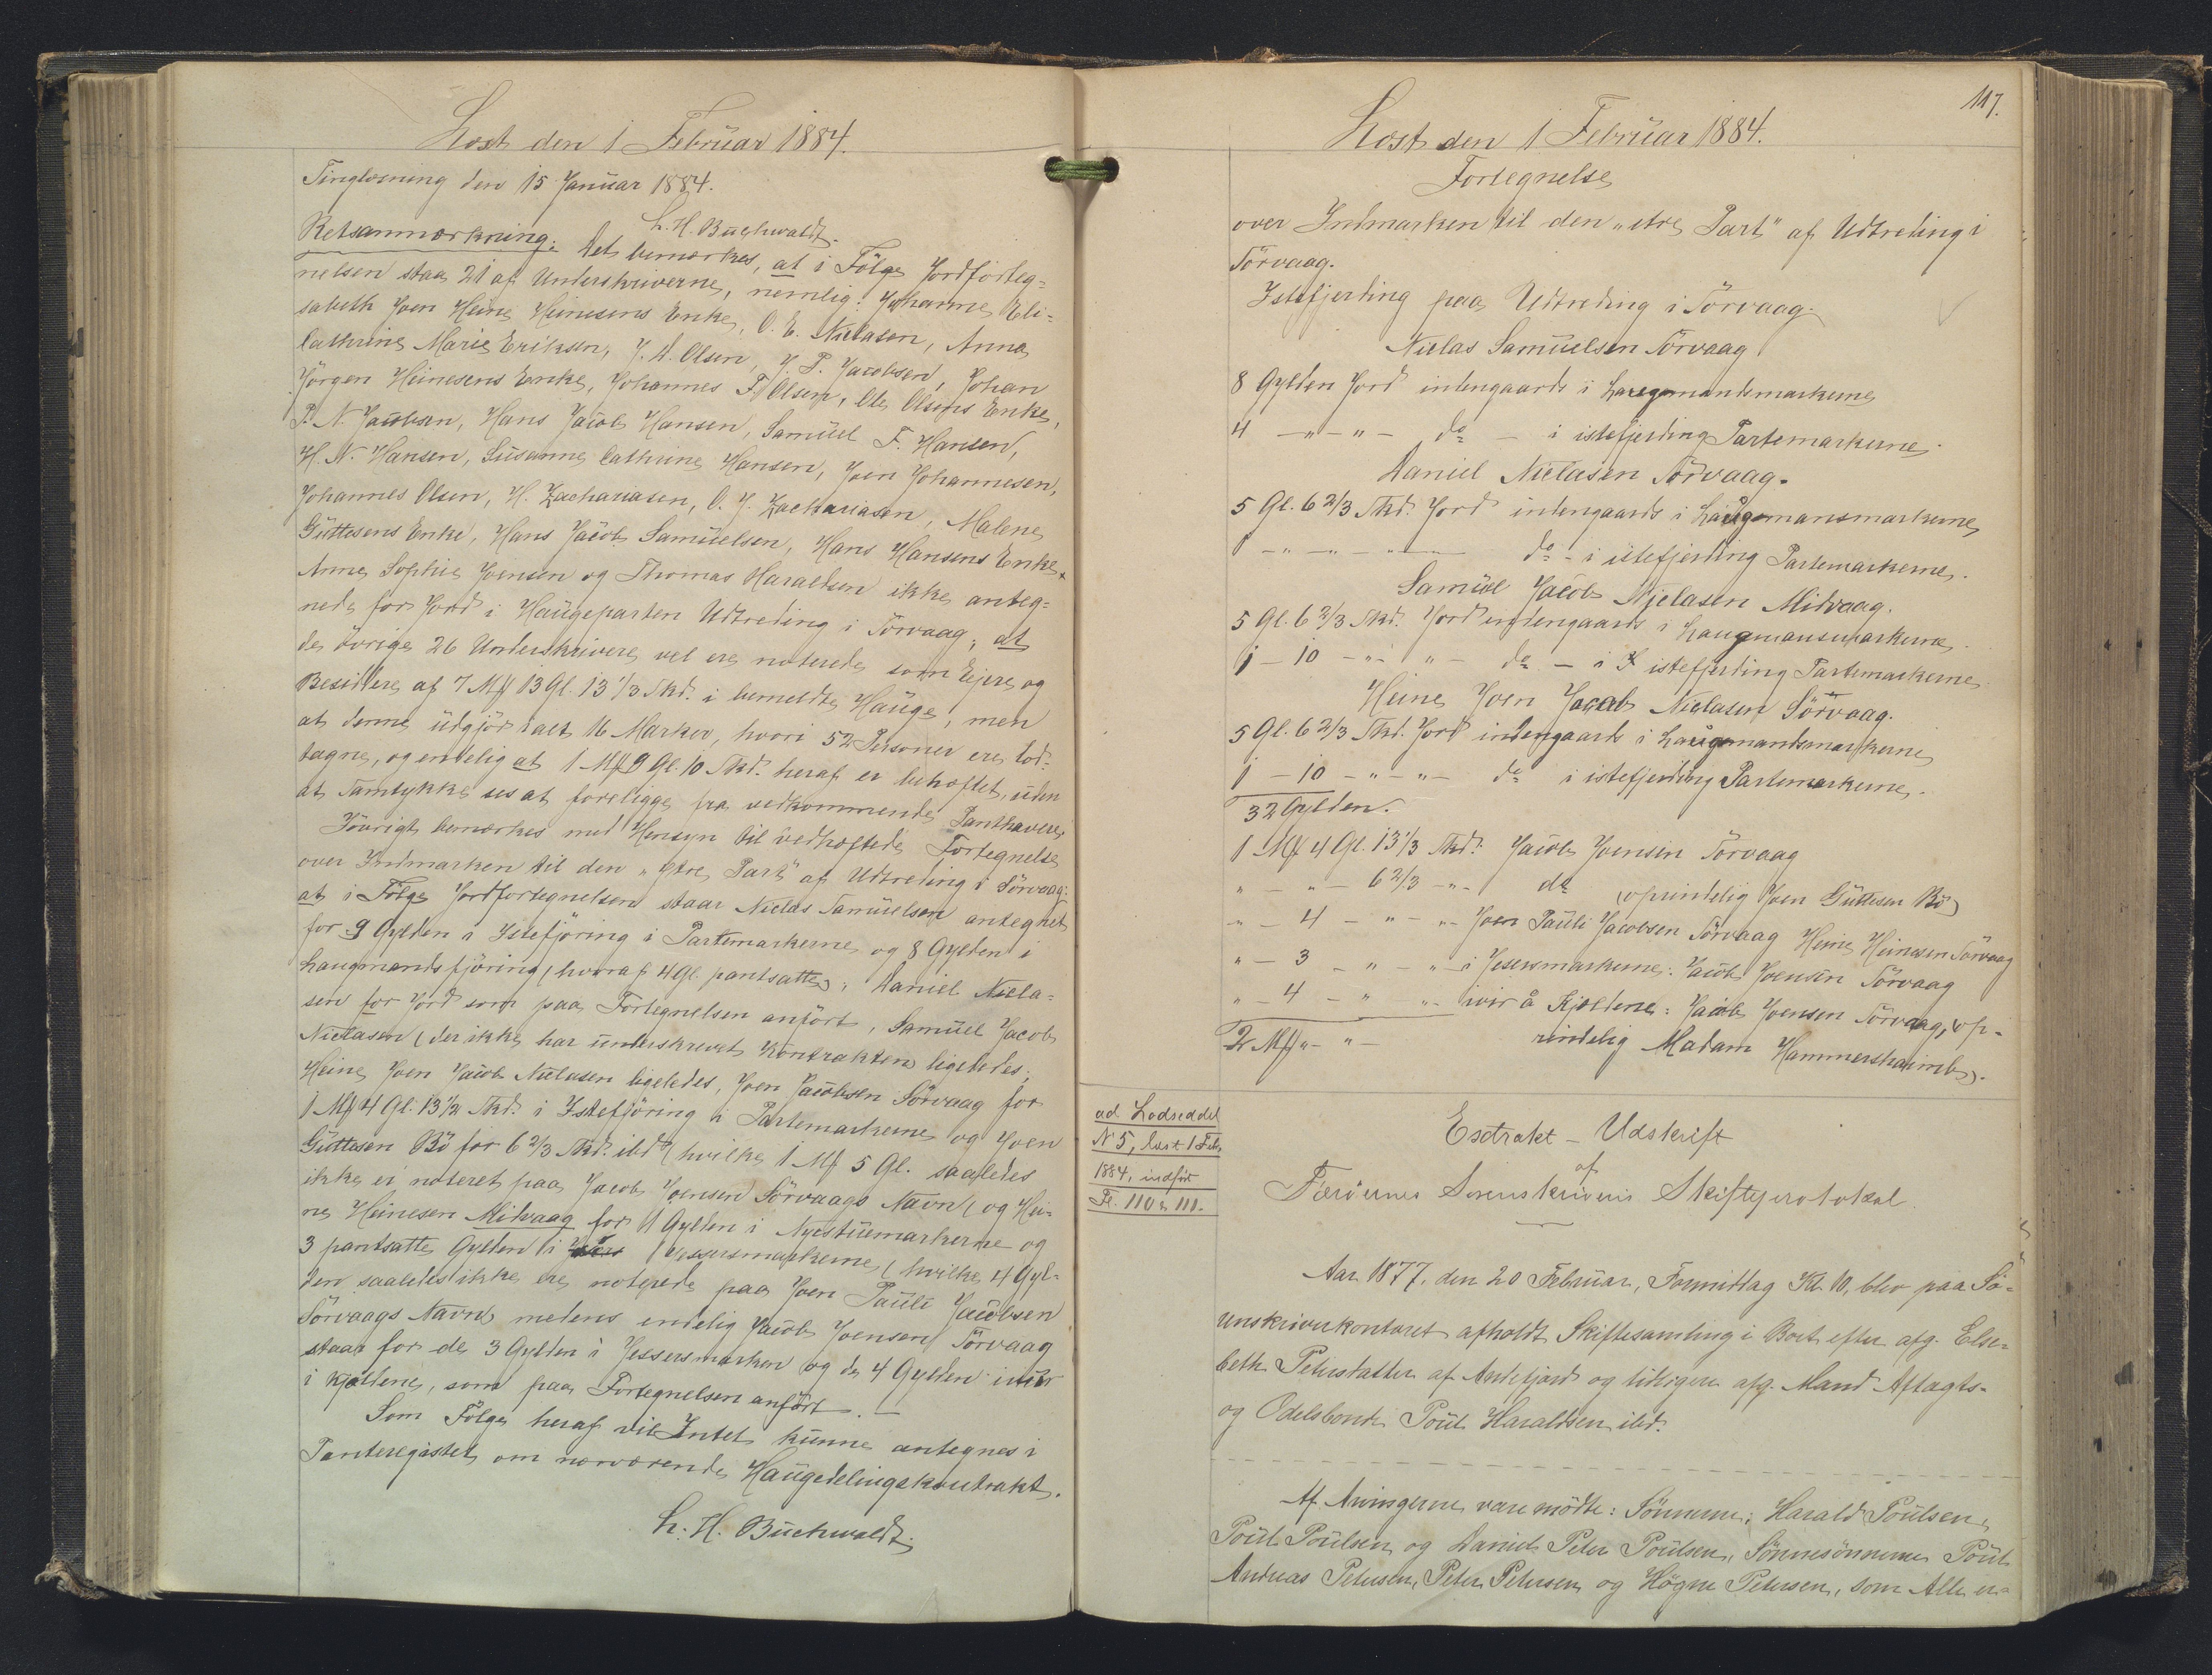 Læst den 1 Februar 1884.
Tinglæsning den 15 Januar 1884.
L. H. Buchwaldt.
Retsanmærkning: Det bemærkes, at i Følge Jordforteg=
nelsen staa 21 af Underskriverne, nemlig: Johanne Eli=
sabeth Joen Heine Heinesens Enke, O. E. Nielasen, Anna
Cathrine Marie Eriksen, J. A. Olsen, J. P. Jacobsen, Johan
Jörgen Heinesens Enke, Johannes F. Olsen, Ole Olsens Enke,
P. N. Jacobsen, Hans Jacob Hansen, Samuel F. Hansen,
H. N. Hansen, Susanne Cathrine Hansen, Joen Johannesen,
Johannes Olsen, H. Zachariasen, O. J. Zachariasen, Malene
Guttesens Enke, Hans Jacob Samuelsen, Hans Hansens Enke
Anne Sophie Joensen og Thomas Haraldsen ikke anteg=
nede for Jord i Haugeparten Udtreding i Sørvaag; at
de övrige 26 Underskrivere vel ere noterede som Ejere og
Besiddere af 7 Mk 13 Gl. 13 1/3 Skd. i bemeldte Hauge, men
at denne udgjör ialt 16 Marker, hvori 52 Personer ere lod=
tagne, og endelig at 1 Mk 9 Gl. 10 Skd. heraf er behæftet, uden
at Samtykke ses at foreligge fra vedkommende Panthavere.
Iövrigt bemærkes med Hensyn til vedhæftede Fortegnelse
over Indmarken til den „ytre Part" af Udtreding i Sörvaag:
at i Følge Jordfortegnelsen staar Nielas Samuelsen antegnet
for 9 Gylden i Istefjöring i Partemarkerne og 8 Gylden i
Laugmandsfjöring (hvoraf 4 Gl. pantsatte), Daniel Niela=
sen for Jord som paa Fortegnelsen anfört, Samuel Jacob
Nielasen (der ikke har underskrevet Kontrakten) ligeledes,
Heine Joen Jacob Nielasen ligeledes, Joen Jacobsen Sörvaag for
1 Mk 4 Gl. 13 1/3 Skd. i Istefjöring i Partemarkerne og Joen
Guttesen Bö for 6 2/3 Skd. ibd (hvilke 1 Mk 5 Gl. saaledes
ikke er noteret paa Jacob Joensen Sörvaags Navn) og Hei=
ne Heinesen Midvaag for 1 Gylden i Nyestuemarkerne og
3 pantsatte Gylden i Jessersmarkerne (hvilke 4 Gyl=
den saaledes ikke ere noterede paa Joen Pauli Jacobsen
Sörvaags Navn) medens endelig Jacob Joensen Sörvaag
staar for de 3 Gylden i Jessersmarken og de 4 Gylden
i Kjeldene, som paa Fortegnelsen anfört. —
Som Fölge heraf vil Intet kunne antegnes i
Panteregistet om nærværende Haugedelingskontrakt.
L. H. Buchwaldt.
117.
Læst den 1 Februar 1884.
Fortegnelse
over Indmarken til den „ytre Part" af Udtreding i
Sörvaag.
Istefjerding paa Udtreding i Sörvaag.
Nielas Samuelsen Sörvaag
8 Gylden Jord indengaards i Laugmandsmarkerne
4 — " — " — do — i istefjerding Partemarkerne.
Daniel Nielasen Sörvaag.
5 Gl. 6 2/3 Skd. Jord indengaards i Laugmansmarkerne
1 — " — " — do — i istefjerding Partemarkerne.
Samuel Jacob Njelasen Midvaag.
5 Gl. 6 2/3 Skd. Jord indengaards i Laugmansmarkerne.
1 — 10 — " — " — do — i istefjerding Partemarkerne
Heine Joen Jacob Nielasen Sörvaag.
5 Gl. 6 2/3 Skd. Jord indengaards i Laugmandsmarkerne
1 — 10 — " — " — do i istefjerding Partemarkerne.
32 Gylden.
1 Mk 4 Gl. 13 1/3 Skd. Jacob Joensen Sörvaag
" — " — 6 2/3 — " — do (oprindelig Joen Guttesen Bö)
" — 4 — " — " — Joen Pauli Jacobsen Sörvaag Heine Heinesen Sörvaag
" — 3 — " — " — i Jesersmarkerne: Jacob Joensen Sörvaag
" — 4 — " — " — ivir å Kjeldene: Jacob Joensen Sörvaag, op=
rindelig Madam Hammershaimb).
2 Mk " — " —
ad. Lodseddel
N 5, læst 1 Feb.
1884, indfør
Fl. 110 & 111.
Exstrakt — Udskrift
af
Færøernes Sorenskriveris Skifteprotokol
Aar 1877, den 20 Februar, Formiddag Kl. 10, blev paa So=
renskriverkontoret afholdt Skiftesamling i Boet efter afg. Else=
beth Petersdatter af Andefjord og tidligere afg. Mand Aftægts=
og Odelsbonde Poul Haraldsen ibd.
Af Arvingerne vare mödte: Sönnerne: Harald Poulsen,
Poul Poulsen og Daniel Peter Poulsen, Sönnesönnerne Poul
Andreas Petersen, Peter Petersen og Högne Petersen, som Alle er=